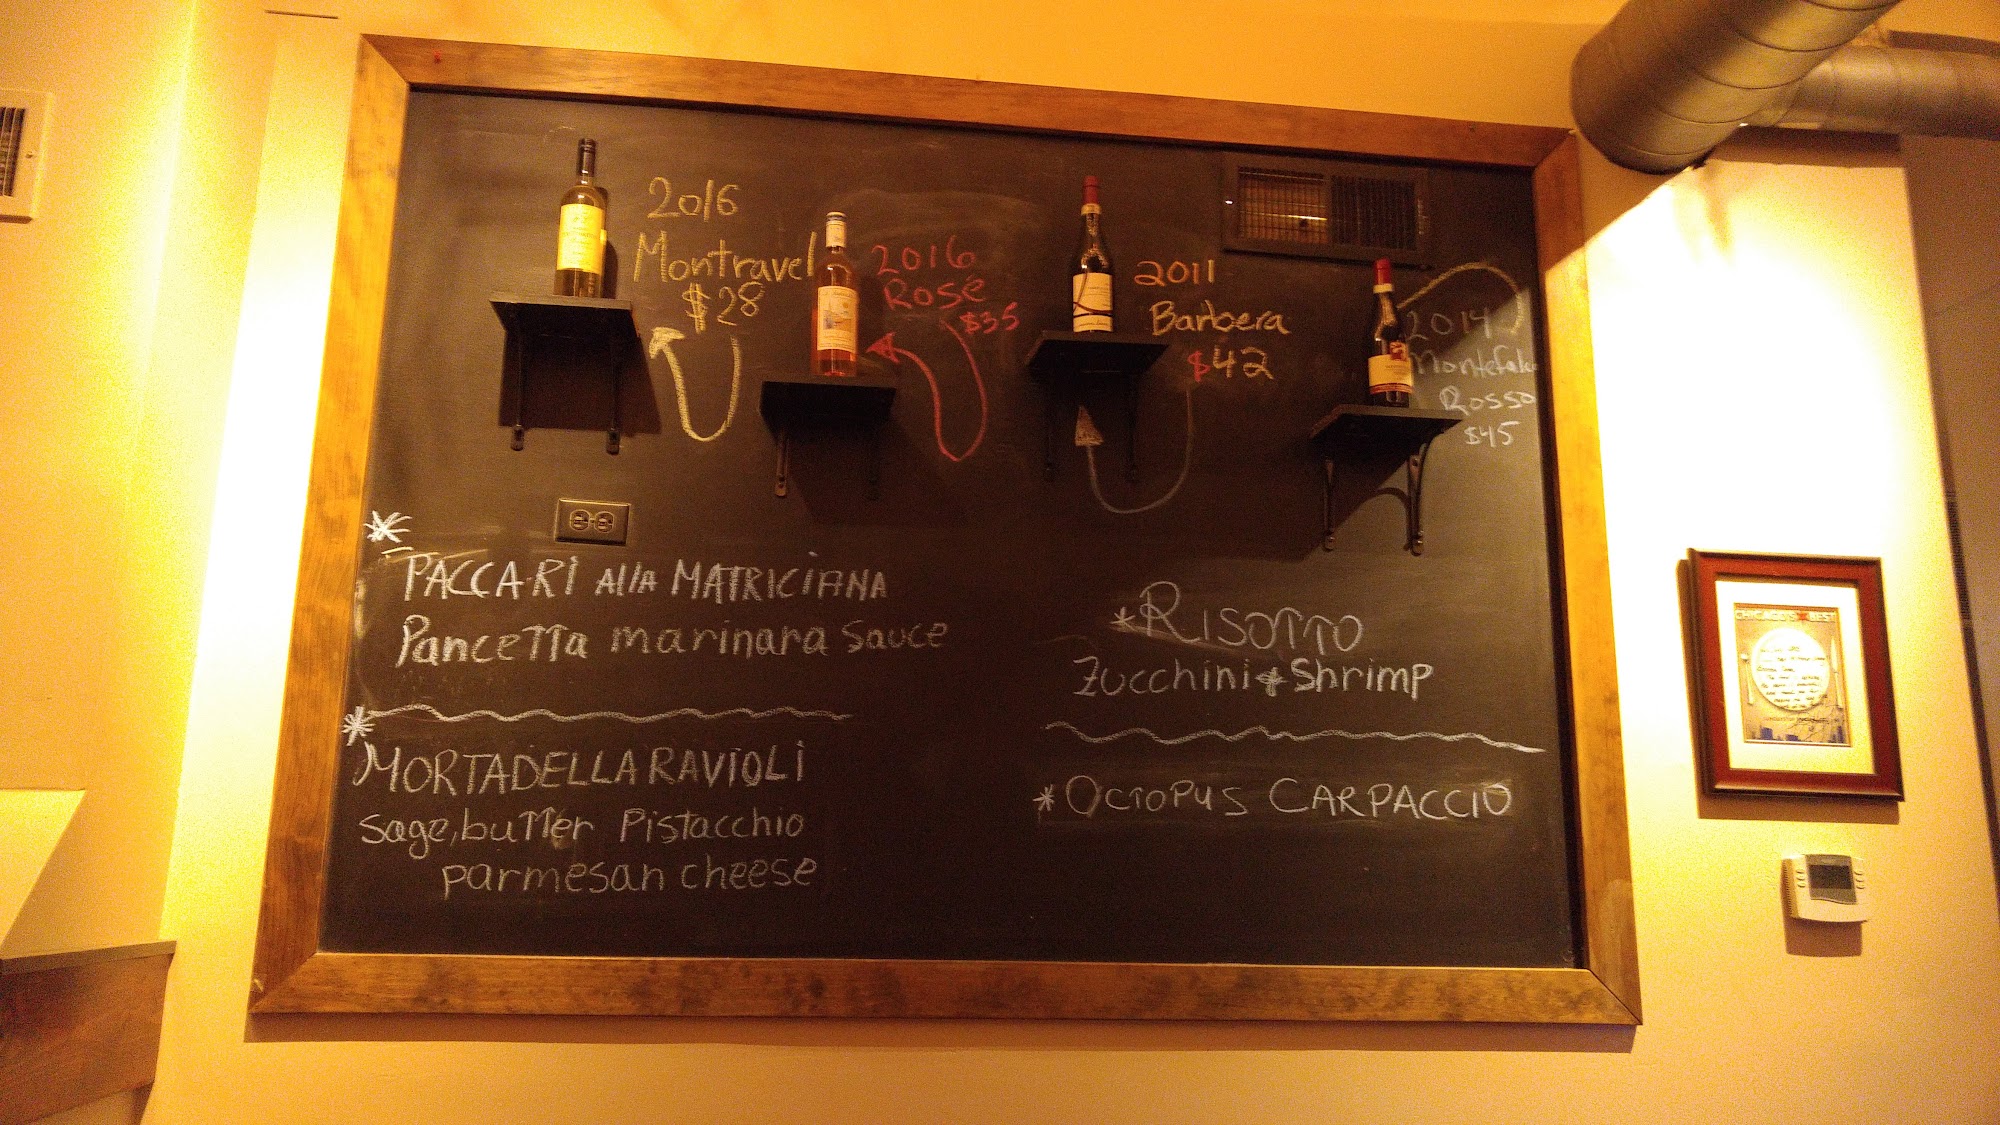 2016
Montravel
$28
2016
Rosé
$35
2011
Barbera
$42
2014
Rosso
$45
PACCARI AllA MATRICIANA
Pancetta marinara sauce
MORTADELLA RAVIOLI
sage, butter Pistacchio
parmesan cheese
*RISOTTO
Zucchini & Shrimp
*OCTOPUS CARPACCIO